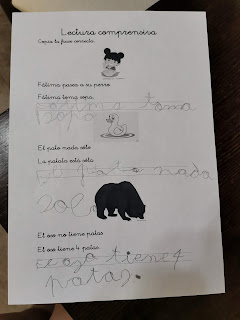 Lectura comprensiva
Copia la frase correcta.
Fátima pasea a su perro
Fátima toma sopa.
Fátima toma
sopa
El pato nada sólo
La patata está rota
El pato nada
solo
El oso no tiene patas
El oso tiene 4 patas.
El oso tiene 4
patas.